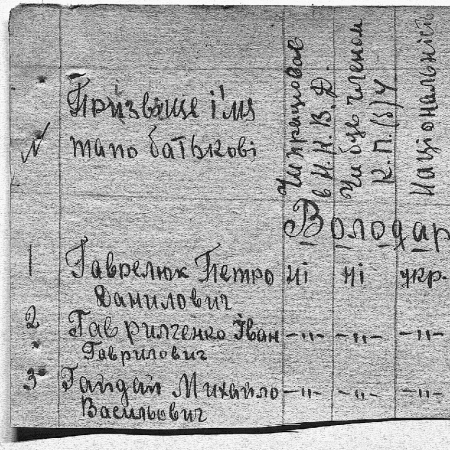 N
Призвище і'мя
тапо батькові
Чи працював
в Н.К.В.Д.
Чи був членом
К.П.(б)У
Національність
Володар
1 Гаврелюк Петро ні ні укр.
Данилович
2 Гаврилченко Іван -"- -"- -"-
Гаврилович
3 Гайдай Михайло -"- -"- -"-
Васильович